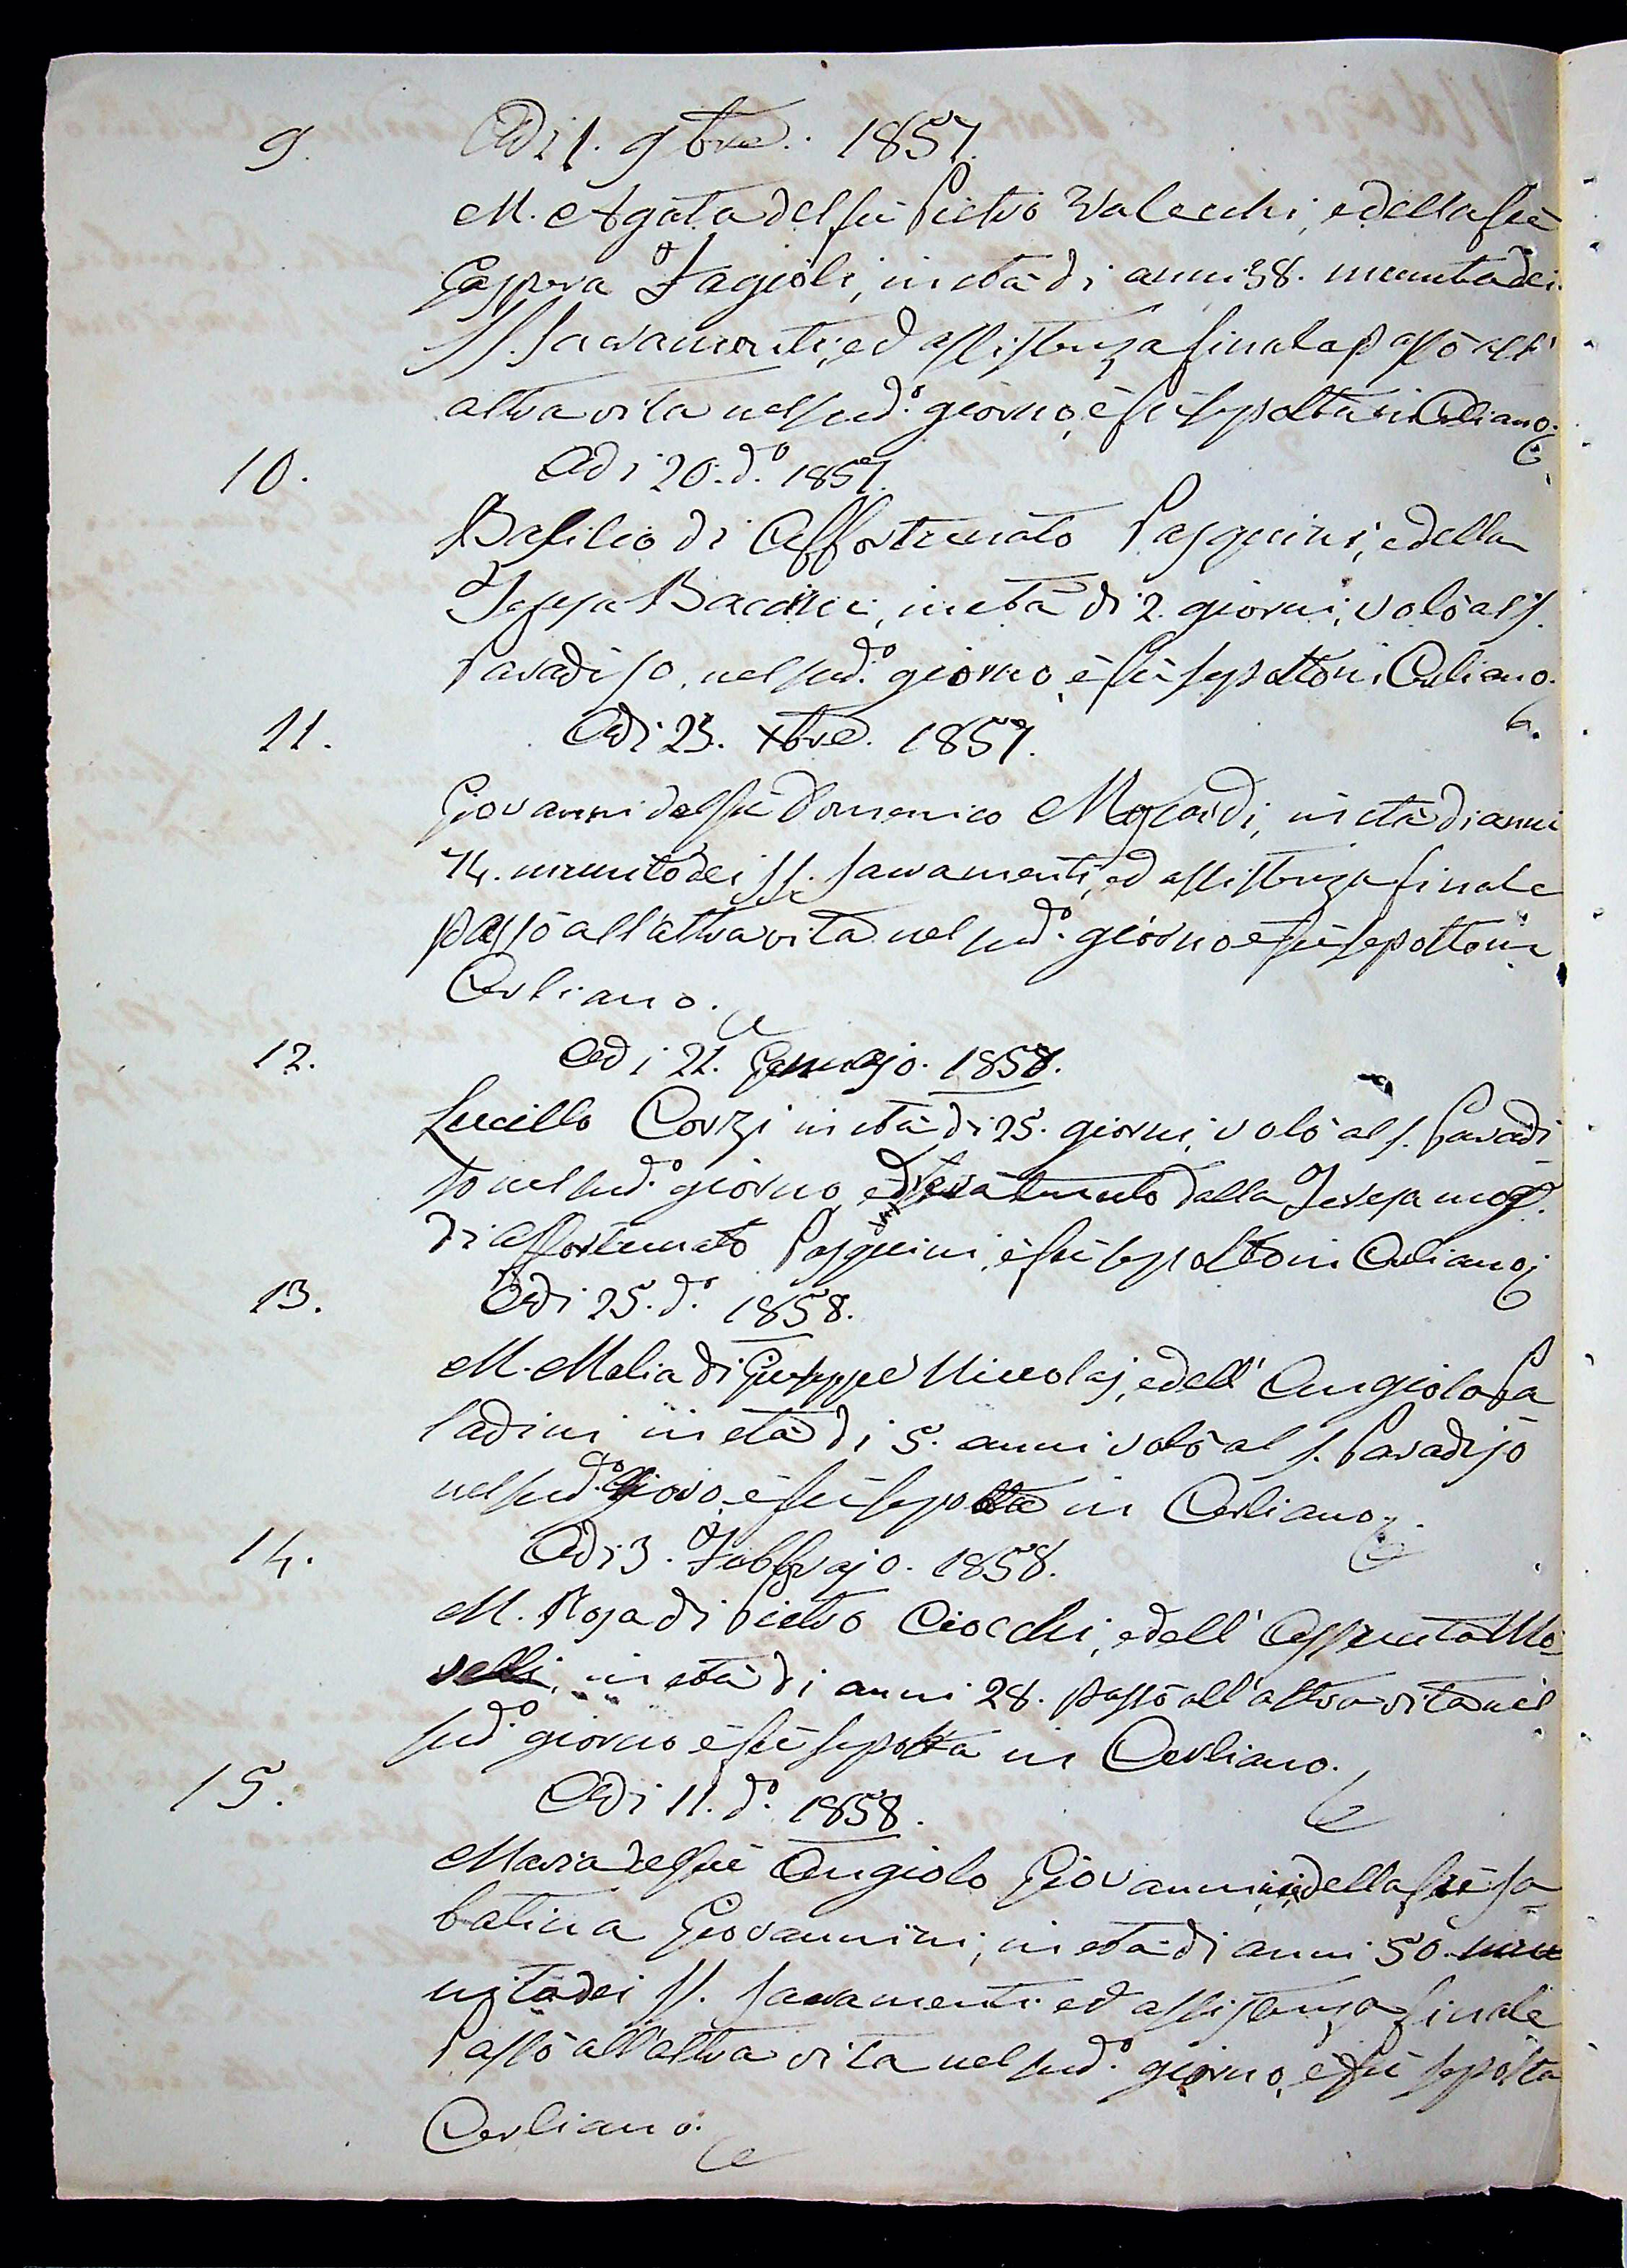 9.
Adi 1. 9bre. 1857.
M. Agata del fù Pietro Valecchi, e della fù
Gaspera Fagioli, in età di anni 38. munita dei
SS. Sacramenti, ed assistenza finale passò all'
altra vita nel sud.o giorno, e fù sepolta in Cerliano.
10.
Adi 20. d.o 1857.
Basilio di Affortunato Pasquini, e della
Teresa, in età di 2. giorni, volò al S.
Paradiso, nel sud.o giorno e fù sepolto in Cerliano.
11.
Adi 23. Xbre. 1857.
Giovanni del fù Domenico, in età di anni
74. munito dei SS. Sacramenti, ed assistenza finale
passò all'altra vita nel sud.o giorno e fù sepolto in
Cerliano.
12.
Adi 21. Gennajo. 1858.
Lucillo Corzi in età di 25. giorni, volò al S. Paradi-
so nel sud.o giorno, ed era tenuto dalla Teresa mog.
di Affortunato Pasquini, e fù sepolto in Cerliano
13.
Adi 25. d.o 1858.
M. Malia di Giuseppe Niccolaj, e dell' Angiola Pa
ladini in età di 5. anni volò al S. Paradiso
nel sud.o e fù sepolta in Cerliano.
14.
Adi 3. Febbrajo. 1858.
M. Rosa di Pietro Ciocchi, e dell' Assunta Mo-
relli, in età di anni 28. passò all'altra vita nel
sud.o giorno e fù sepolta in Cerliano.
15.
Adi 11. d.o 1858.
Maria del fù Angiolo Giovannini, e della fù Sa-
batina Giovannini, in età di anni 50. mu
nita dei SS. Sacramenti ed assistenza finale
Passò all'altra vita nel sud.o giorno, e fù sepolta
Cerliano.